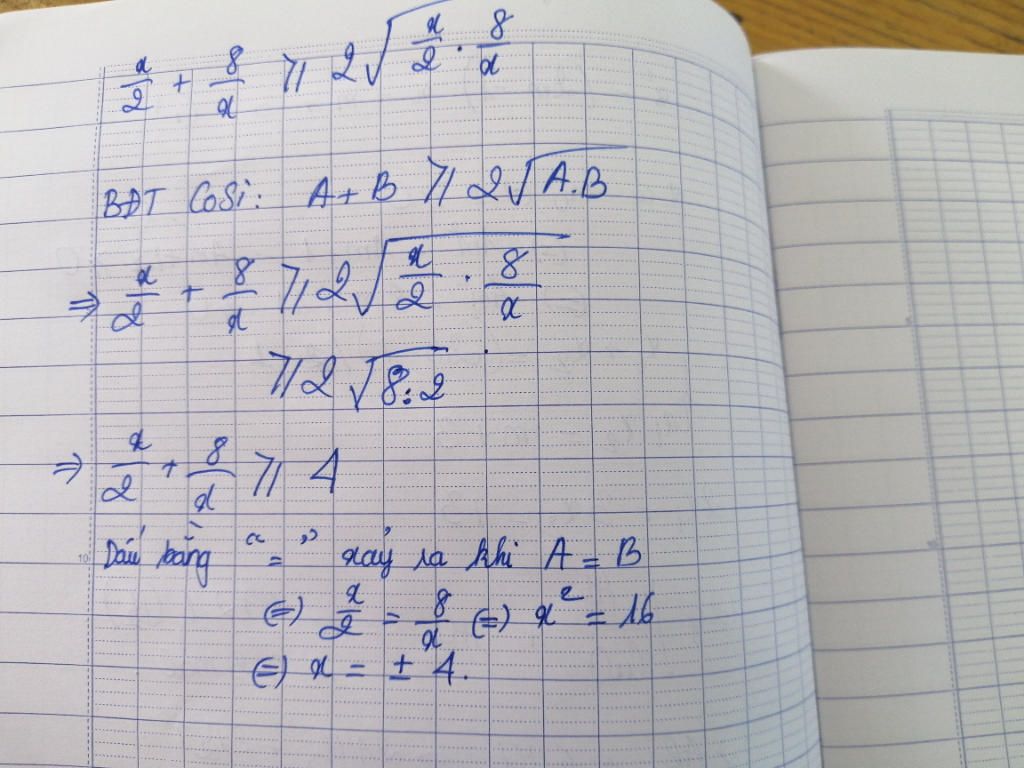 x/2 + 8/x ≥ 2√(x/2 . 8/x)
BĐT CoSi: A + B ≥ 2√(A.B)
⇒ x/2 + 8/x ≥ 2√(x/2 . 8/x)
≥ 2√(8:2)
⇒ x/2 + 8/x ≥ 4
Dấu bằng "=" xảy ra khi A = B
⇔ x/2 = 8/x ⇔ x² = 16
⇔ x = ± 4.